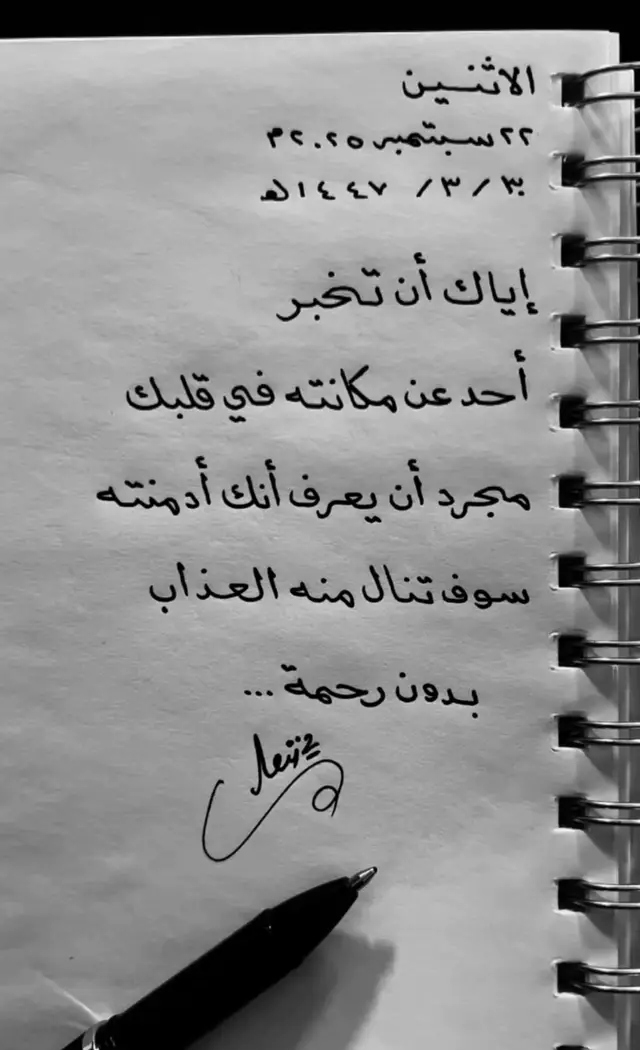 الاثنين
٢٢ سبتمبر ٢٠٢٥م
٣٠ / ٣ / ١٤٤٧هـ
إياك أن تخبر
أحد عن مكانته في قلبك
مجرد أن يعرف أنك أدمنته
سوف تنال منه العذاب
بدون رحمة ...